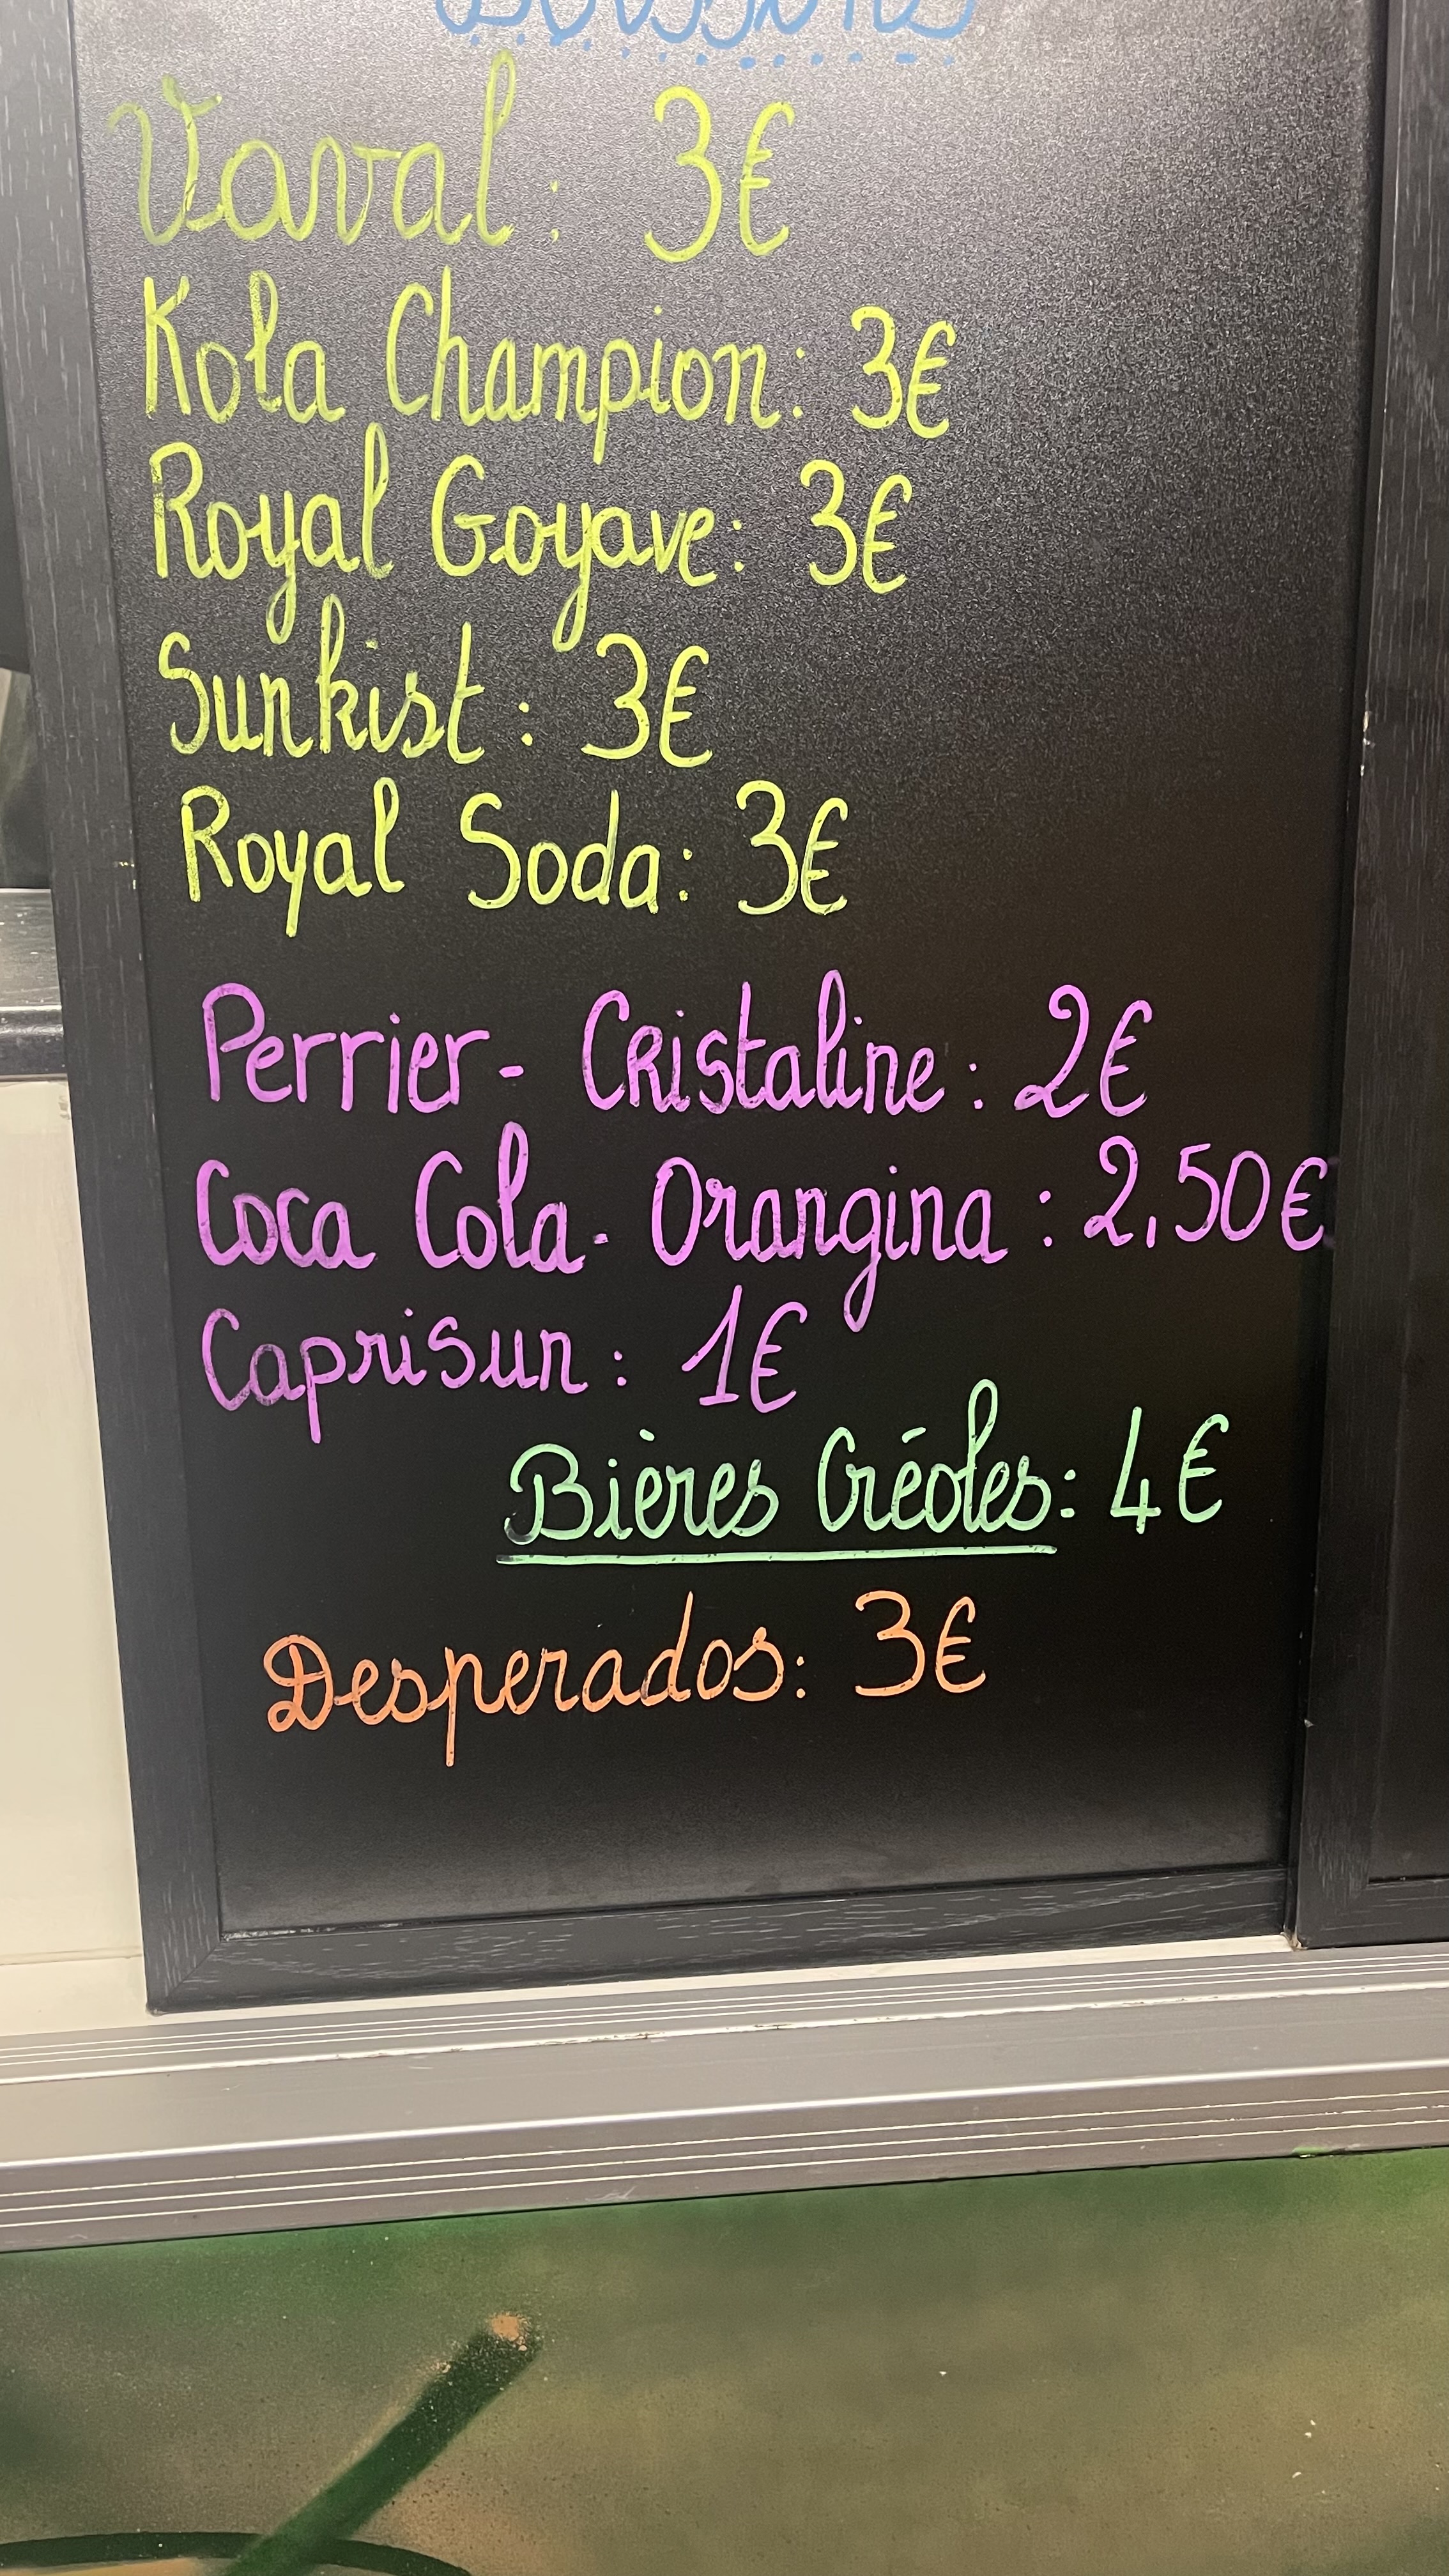 Boissons
Vaval : 3€
Kola Champion : 3€
Royal Goyave : 3€
Sunkist : 3€
Royal Soda : 3€
Perrier - Cristaline : 2€
Coca Cola - Orangina : 2,50€
Caprisun : 1€
Bières Créoles : 4€
Desperados : 3€